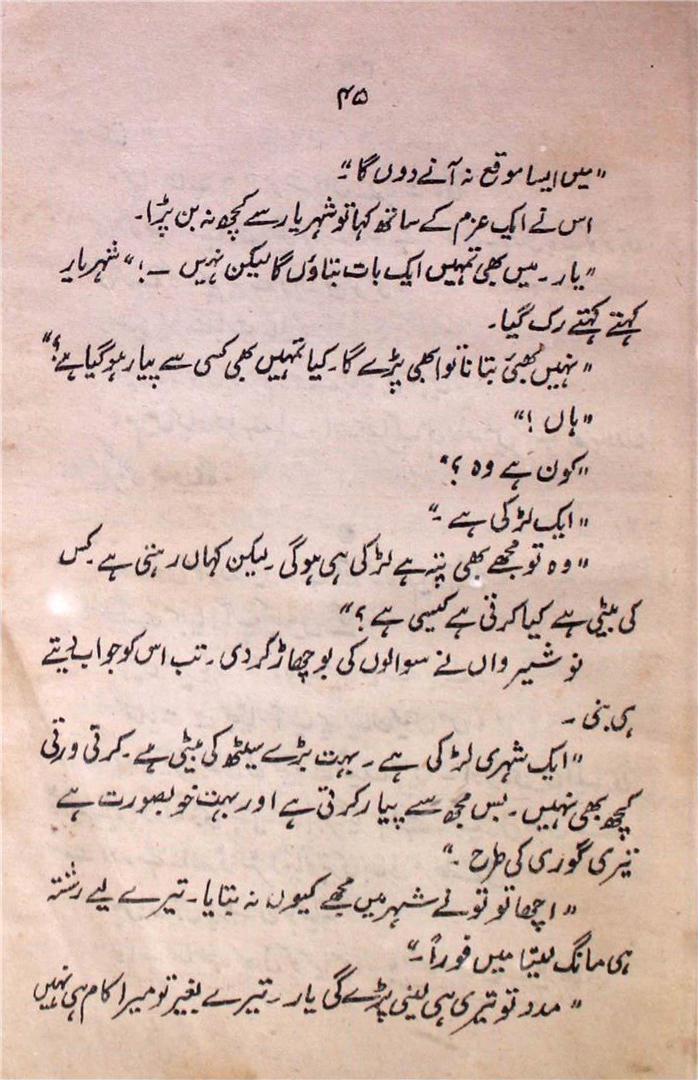 ۴۵
"میں ایسا موقع نہ آنے دوں گا۔"
اس نے ایک عزم کے ساتھ کہا تو شہریار سے کچھ نہ بن پڑا۔
"یار۔ میں بھی تمہیں ایک بات بتاؤں گا لیکن نہیں ۔!" شہریار
کہتے کہتے رک گیا۔
"نہیں بھئی بتانا تو ابھی پڑے گا۔ کیا تمہیں بھی کسی سے پیار ہو گیا ہے؟"
"ہاں !"
"کون ہے وہ ؟"
"ایک لڑکی ہے ۔"
"وہ تو مجھے بھی پتہ ہے لڑکی ہی ہوگی۔ لیکن کہاں رہتی ہے۔ کس
کی بیٹی ہے کیا کرتی ہے کیسی ہے ؟"
نوشیرواں نے سوالوں کی بوچھاڑ کر دی۔ تب اس کو جواب دیتے
ہی بنی ۔
"ایک شہری لڑکی ہے ۔ بہت بڑے سیٹھ کی بیٹی ہے۔ کرتی ورتی
کچھ بھی نہیں۔ بس مجھ سے پیار کرتی ہے اور بہت خوبصورت ہے
تیری گوری کی طرح ۔"
"اچھا تو تو نے شہر میں مجھے کیوں نہ بتایا۔ تیرے لیے رشتہ
ہی مانگ لیتا میں فوراً۔"
"مدد تو تیری ہی لینی پڑے گی یار۔ تیرے بغیر تو میرا کام ہی نہیں